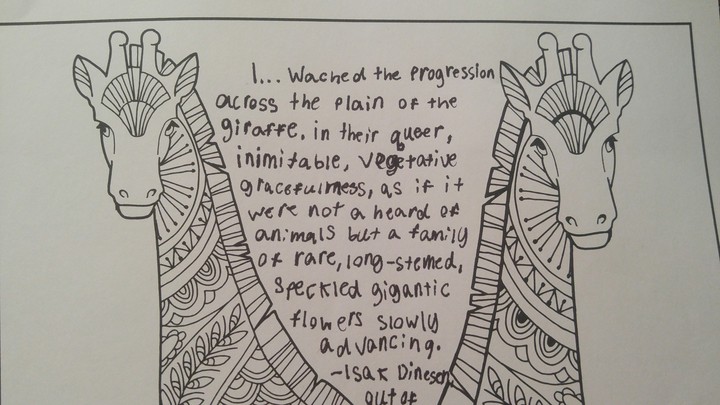 I... Wached the progression
across the plain of the
giraffe, in their queer,
inimitable, vegetative
gracefulness, as if it
were not a heard of
animals but a family
of rare, long-stemed,
speckled gigantic
flowers slowly
advancing.
~Isak Dinesen
out of